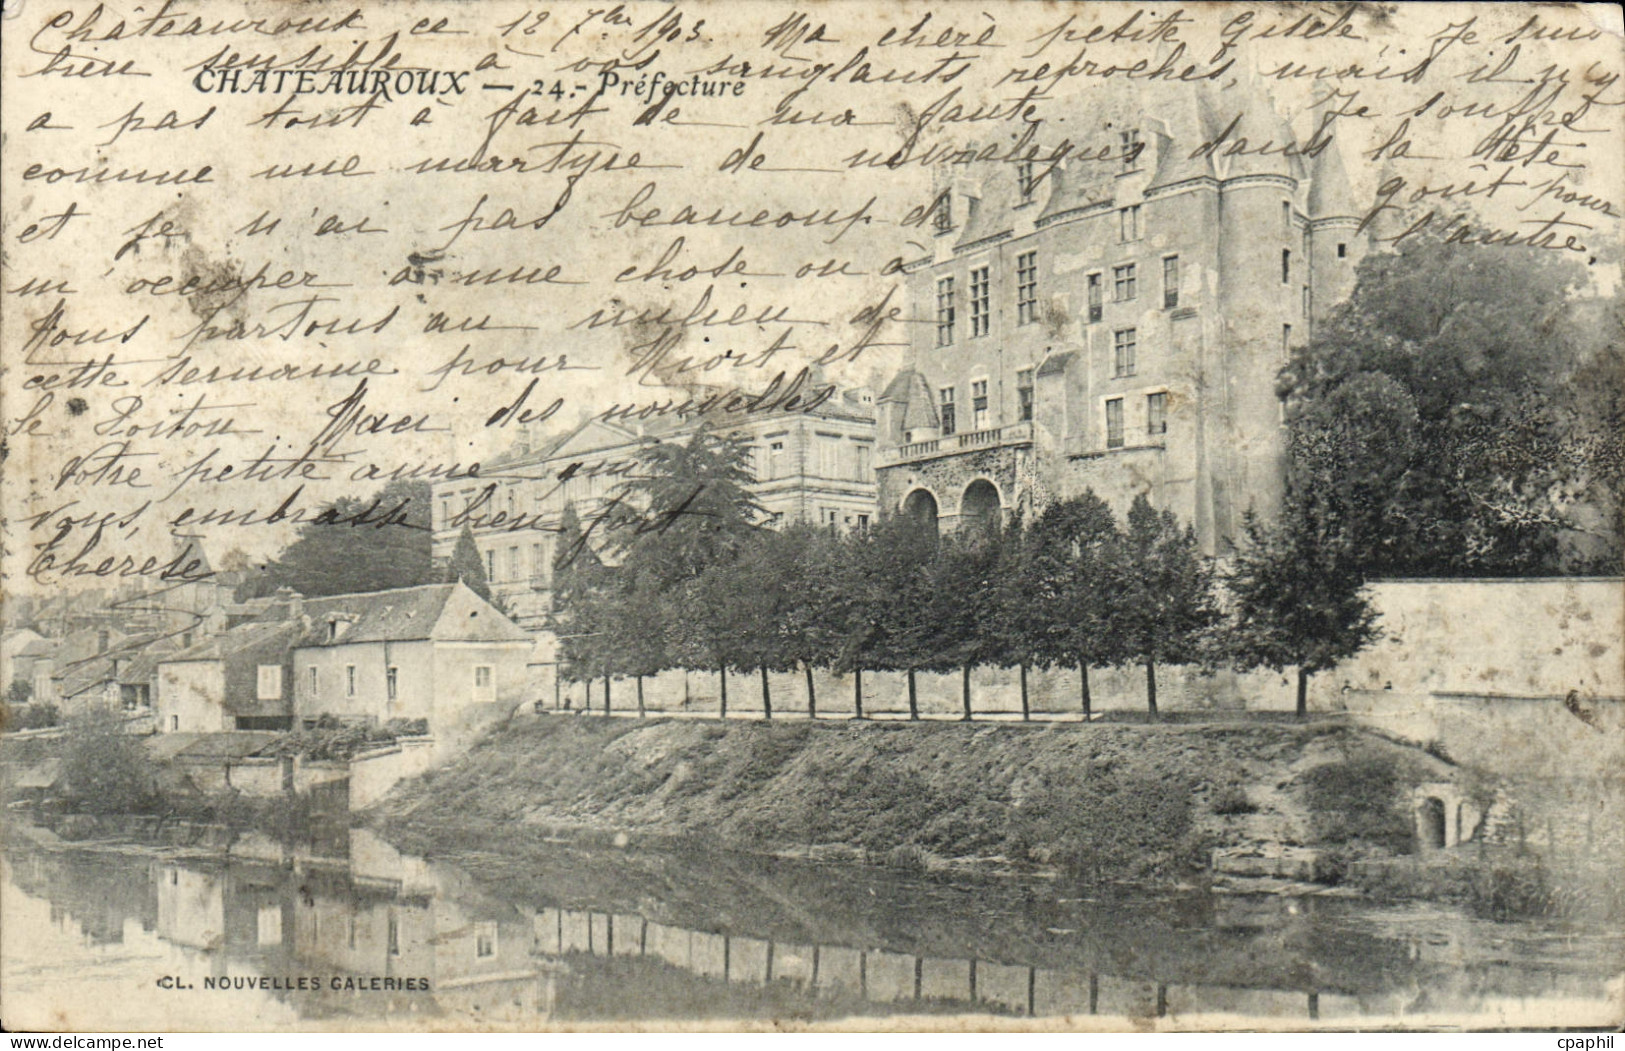 Châteauroux ce 12 7bre 1903. Ma chère petite Gisèle, Je suis
bien sensible à vos sanglants reproches, mais il n'y
CHATEAUROUX — 24.- Préfecture
a pas tout à fait de ma faute. Je souffre
comme une martyre de névralgies dans la tête
et je n'ai pas beaucoup de goût pour
m'occuper à une chose ou à l'autre.
Nous partons au milieu de
cette semaine pour Niort et
le Poitou. Merci des nouvelles
Votre petite amie qui
vous embrasse bien fort.
Thérèse
CL. NOUVELLES GALERIES
cpaphil
delcampe.net